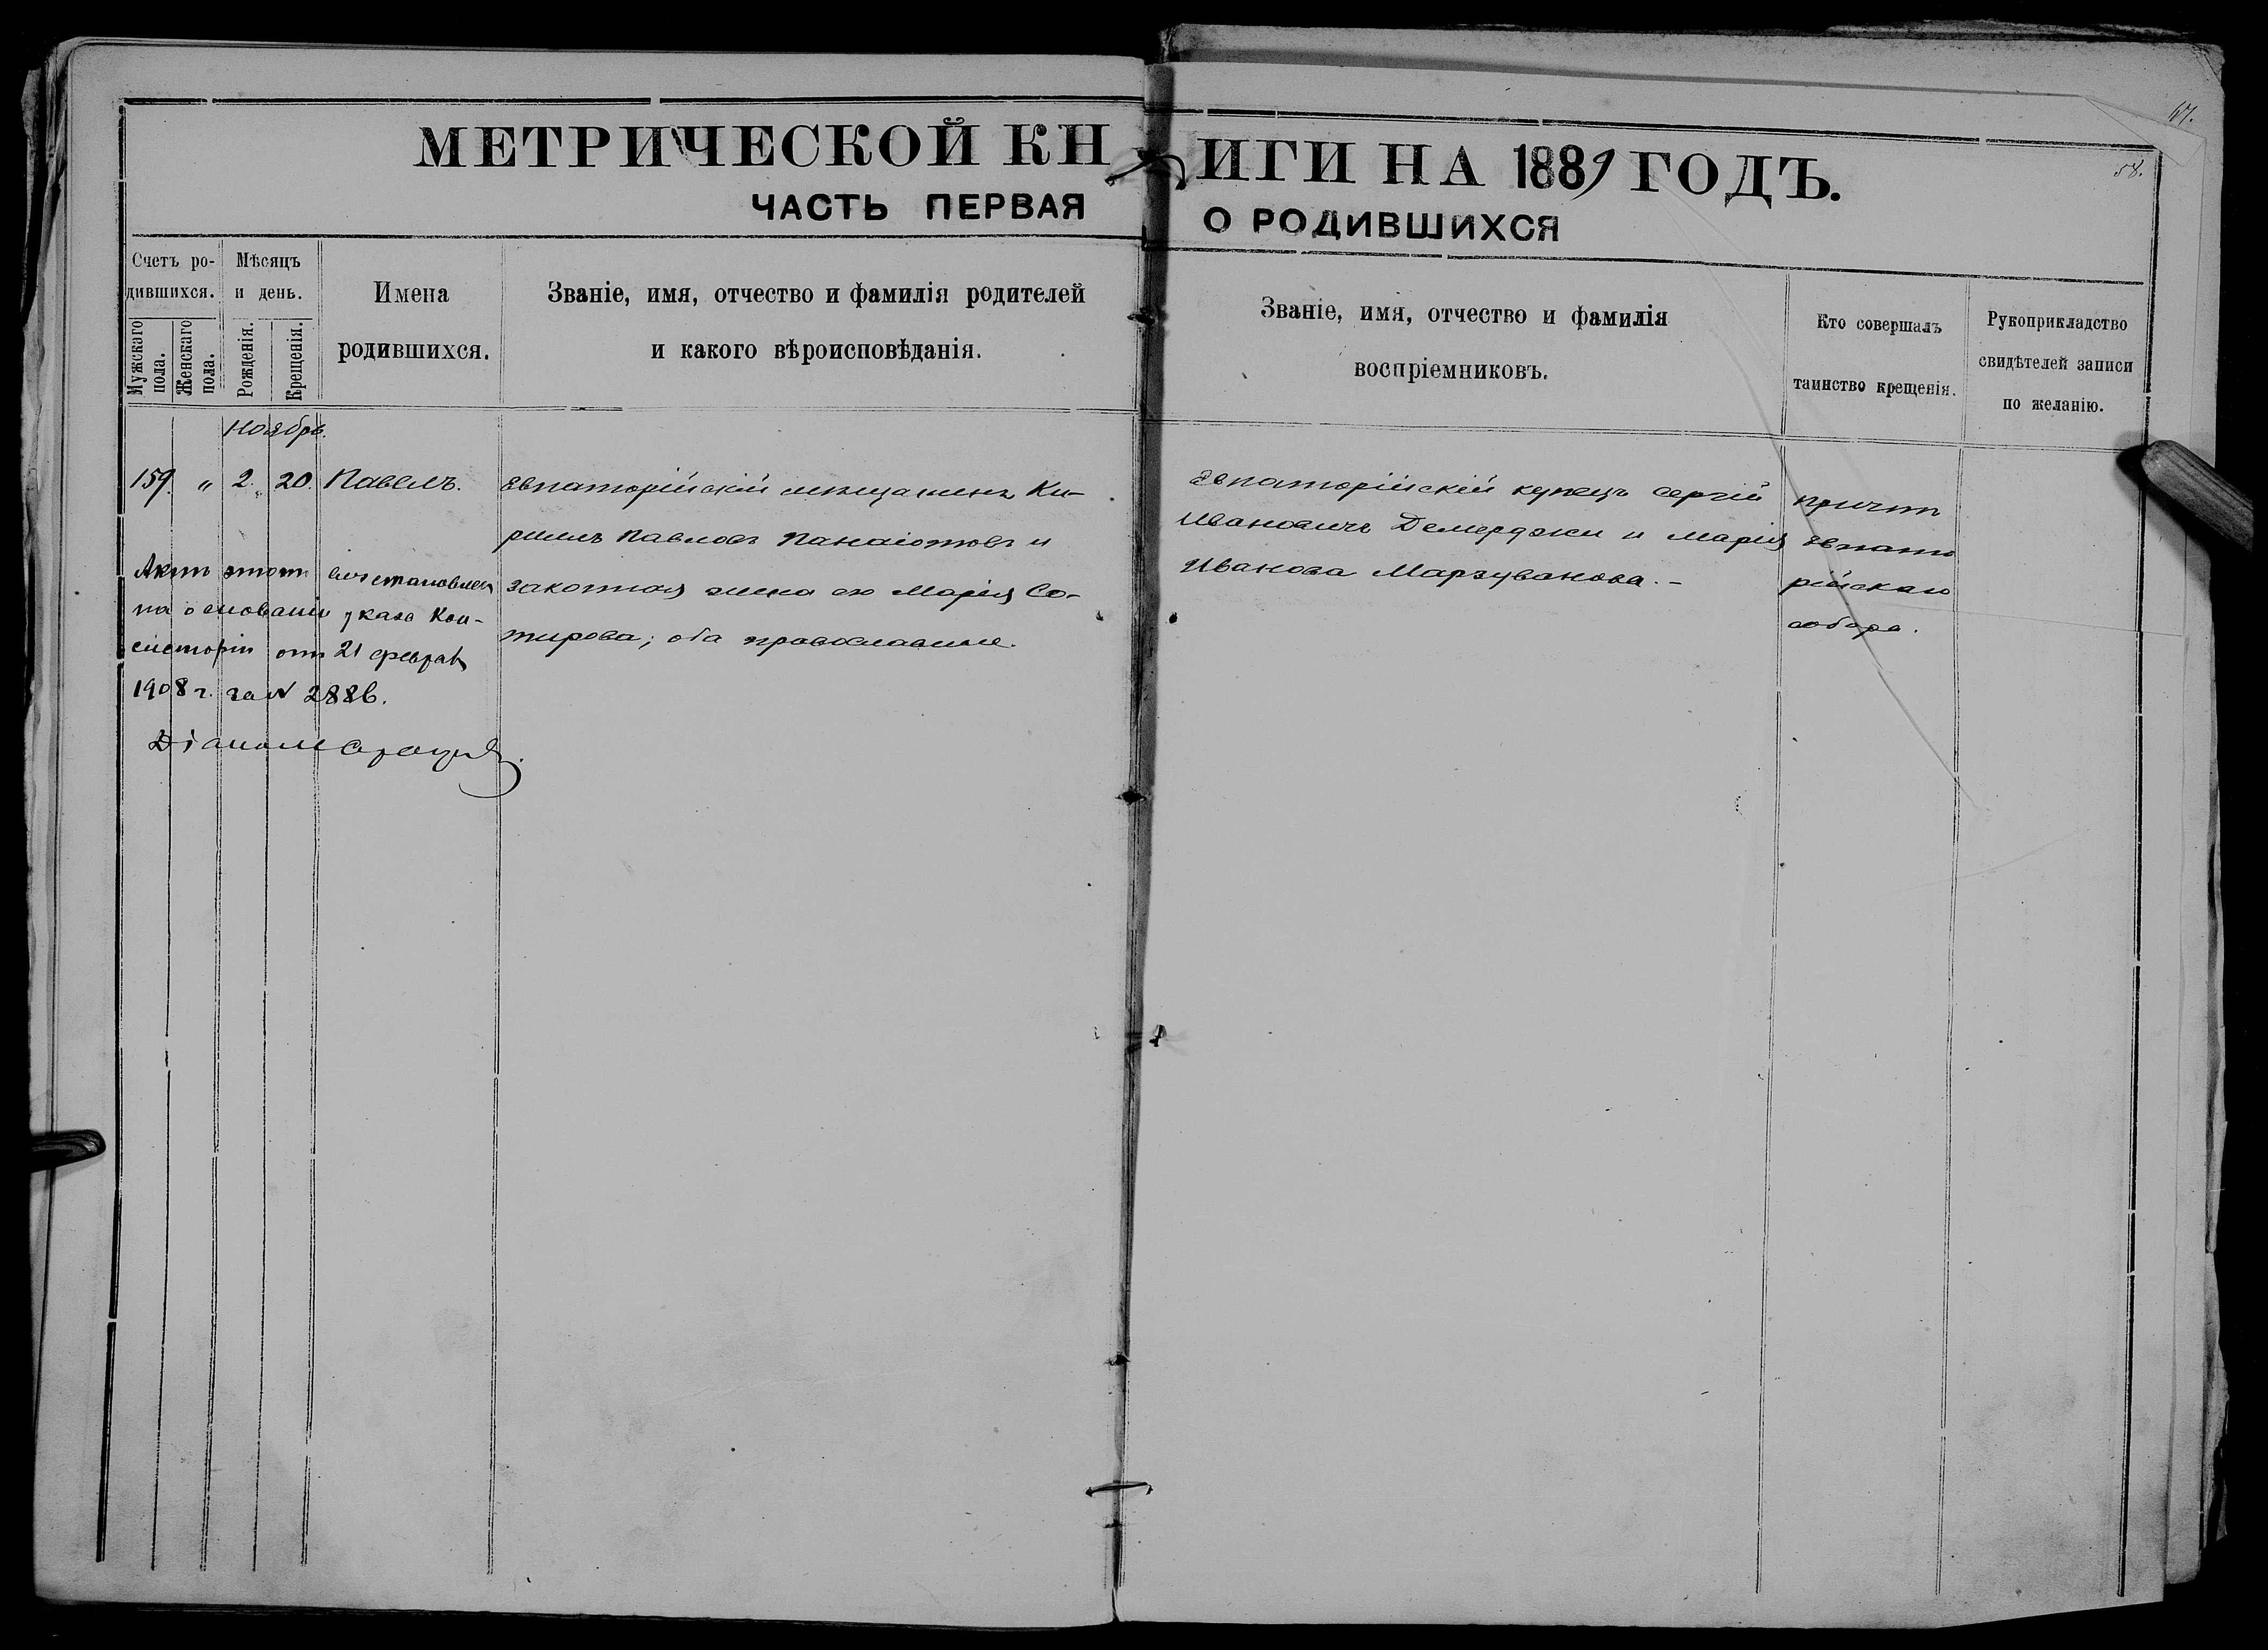 МЕТРИЧЕСКОЙ КНИГИ НА 1889 ГОДЪ.
ЧАСТЬ ПЕРВАЯ О РОДИВШИХСЯ
58.
Счетъ родившихся.
Мужскаго пола.
Женскаго пола.
Мѣсяцъ и день.
Рожденія.
Крещенія.
Имена
родившихся.
Званіе, имя, отчество и фамилія родителей
и какого вѣроисповѣданія.
Званіе, имя, отчество и фамилія
воспріемниковъ.
Кто совершалъ
таинство крещенія.
Рукоприкладство
свидѣтелей записи
по желанію.
Ноябрь.
159. " 2. 20. Павелъ.
Евпаторійскій мѣщанинъ Ки-
риллъ Павловъ Панаіотовъ и
законная жена его Марія Со-
тирова; оба православные.
Евпаторійскій купецъ Сергій
Ивановичъ Демерджи и Марія
Иванова Марзуванова. -
Причтъ
Евпато
рійскаго
собора.
Актъ этотъ возстановленъ
на основаніи указа Кон-
систоріи отъ 21 февраля
1908 г. за № 2886.